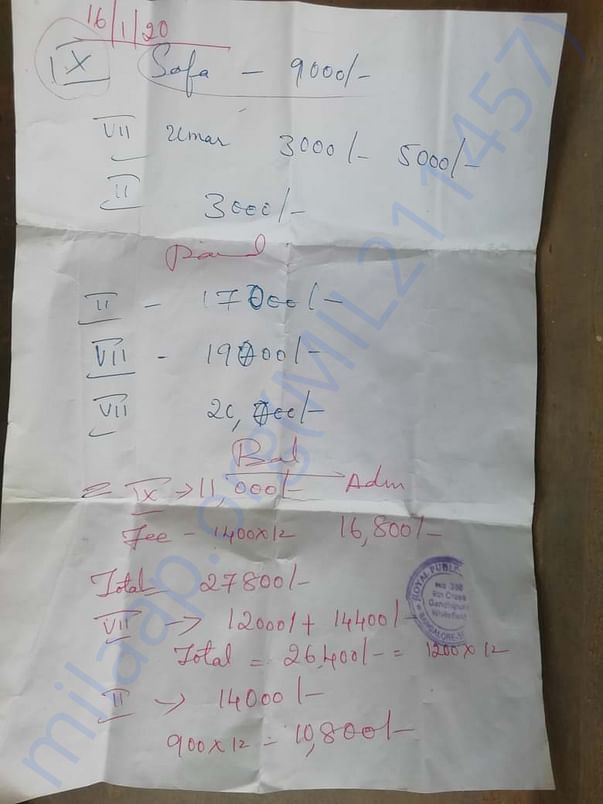 16/1/20
IX Sofa - 9000/-
VII Umar 3000/- 5000/-
II 3000/-
Paid
II - 17000/-
VII - 19000/-
VII 20,000/-
Bal
= IX → 11,000/- Adm
Fee - 1400x12 16,800/-
Total = 27800/-
VII → 12000/ + 14400/-
Total = 26,400/- = 1200 x 12
II → 14000/-
900 x 12 = 10,800/-
ROYAL PUBLIC
No 398
6th Cross
Gandhipura
Whitefield
BANGALORE
milaap.org(MIL211457)